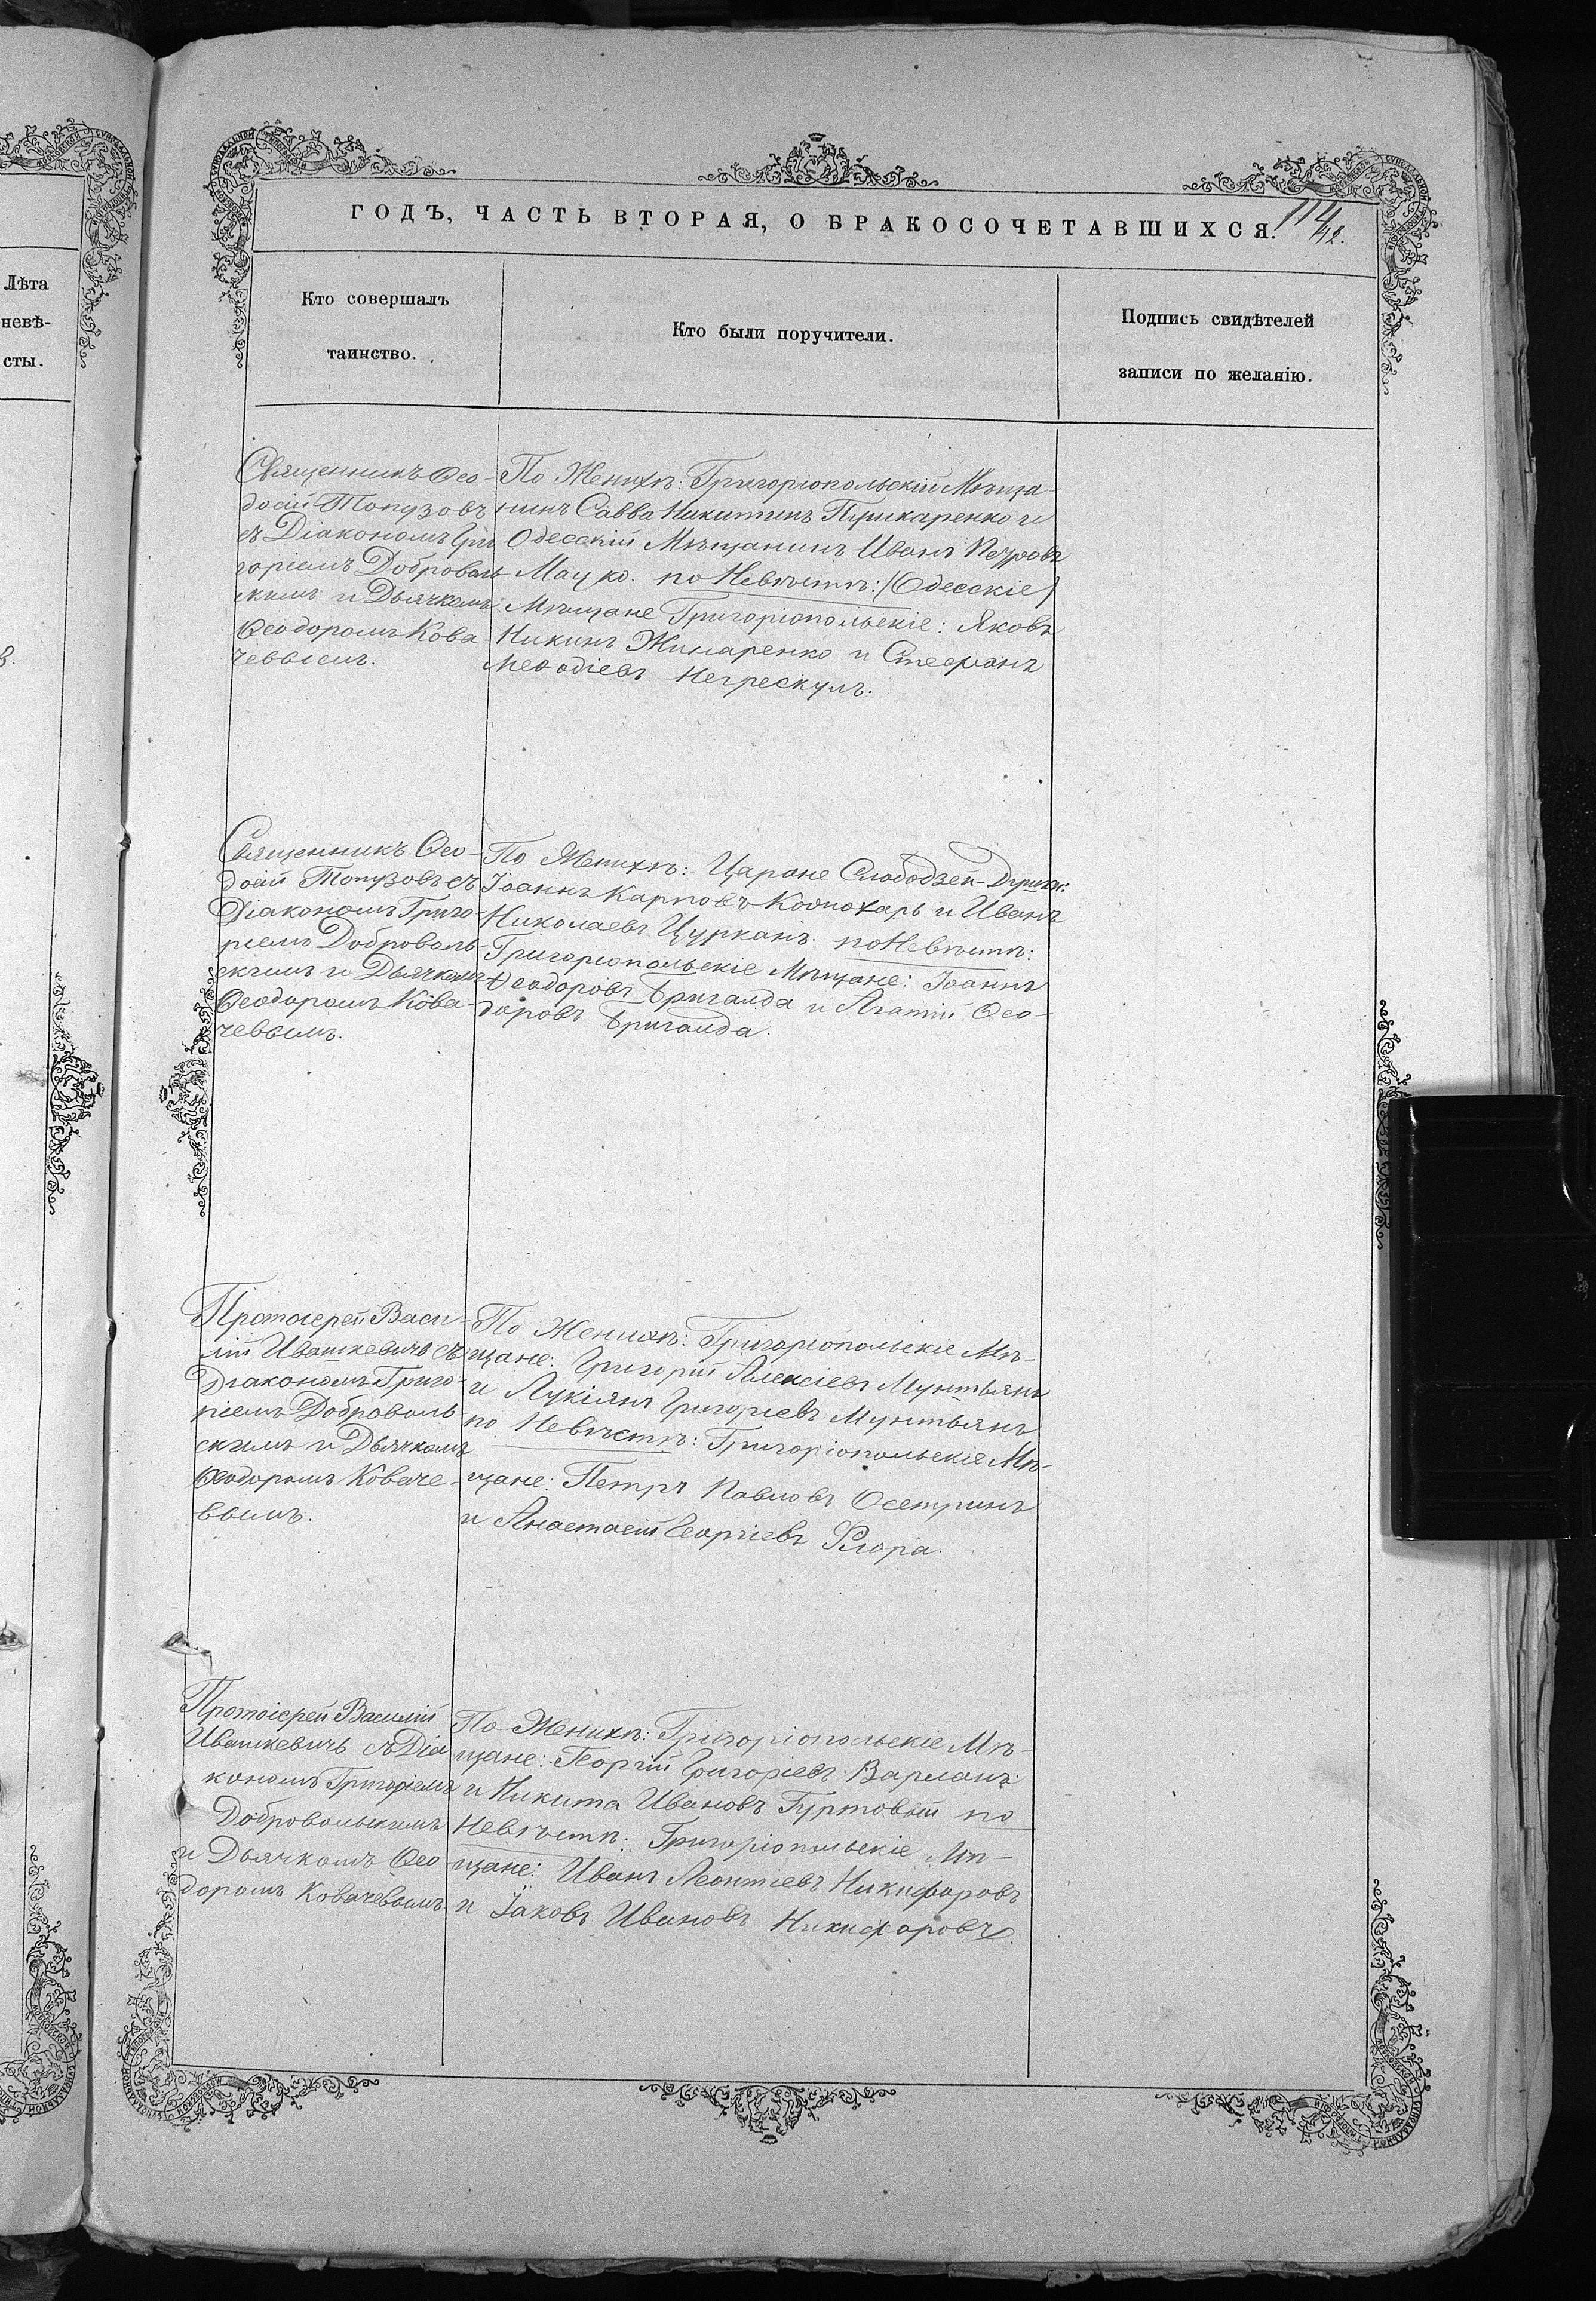 Лѣта
невѣ-
сты.
ГОДЪ, ЧАСТЬ ВТОРАЯ, О БРАКОСОЧЕТАВШИХСЯ.
Кто совершалъ
таинство.
Кто были поручители.
Подпись свидѣтелей
записи по желанію.
Священникъ Ѳео-
досій Топузовъ
съ Діакономъ Гри
горіемъ Доброволь
скимъ и Дьячкомъ
Ѳеодоромъ Кова-
чевымъ.
По Женихѣ: Григоріопольскій Мѣща-
нинъ Савва Никитинъ Пушкаренко и
Одесскій Мѣщанинъ Иванъ Петровъ
Мацко. по Невѣстѣ: (Одесскіе)
Мѣщане Григоріопольскіе: Яковъ
Никинъ Жимаренко и Стефанъ
Меѳодіевъ Негрескулъ.
Священникъ Ѳео-
досій Топузовъ съ
Діакономъ Григо-
ріемъ Доброволь-
скимъ и Дьячкомъ
Ѳеодоромъ Кова-
чевымъ.
По Женихѣ: Царане Слободзеи-
Іоаннъ Карповъ и Иванъ
Николаевъ Цурканъ. по Невѣстѣ:
Григоріопольскіе Мѣщане: Іоаннъ
Ѳеодоровъ Бригалда и Агапій Ѳео-
доровъ Бригалда.
Протоіерей Васи-
лій Ивашкевичъ съ
Діакономъ Григо-
ріемъ Доброволь
скимъ и Дьячкомъ
Ѳеодоромъ Коваче-
вымъ.
По Женихѣ: Григоріопольскіе Мѣ-
щане: Григорій Алексіевъ Мунтьянъ
и Лукіянъ Григоріевъ Мунтьянъ
по Невѣстѣ: Григоріопольскіе Мѣ-
щане: Петръ Павловъ Осетринъ
и Анастасій Георгіевъ Флоря.
Протоіерей Василій
Ивашкевичъ съ Діа
кономъ Григоріемъ
Добровольскимъ
и Дьячкомъ Ѳео
доромъ Ковачевымъ.
По Женихѣ: Григоріопольскіе Мѣ-
щане: Георгій Григоріевъ Варланъ
и Никита Ивановъ Гуртовой по
Невѣстѣ: Григоріопольскіе Мѣ-
щане: Иванъ Леонтіевъ Никифоровъ
и Іаковъ Ивановъ Никифоровъ.